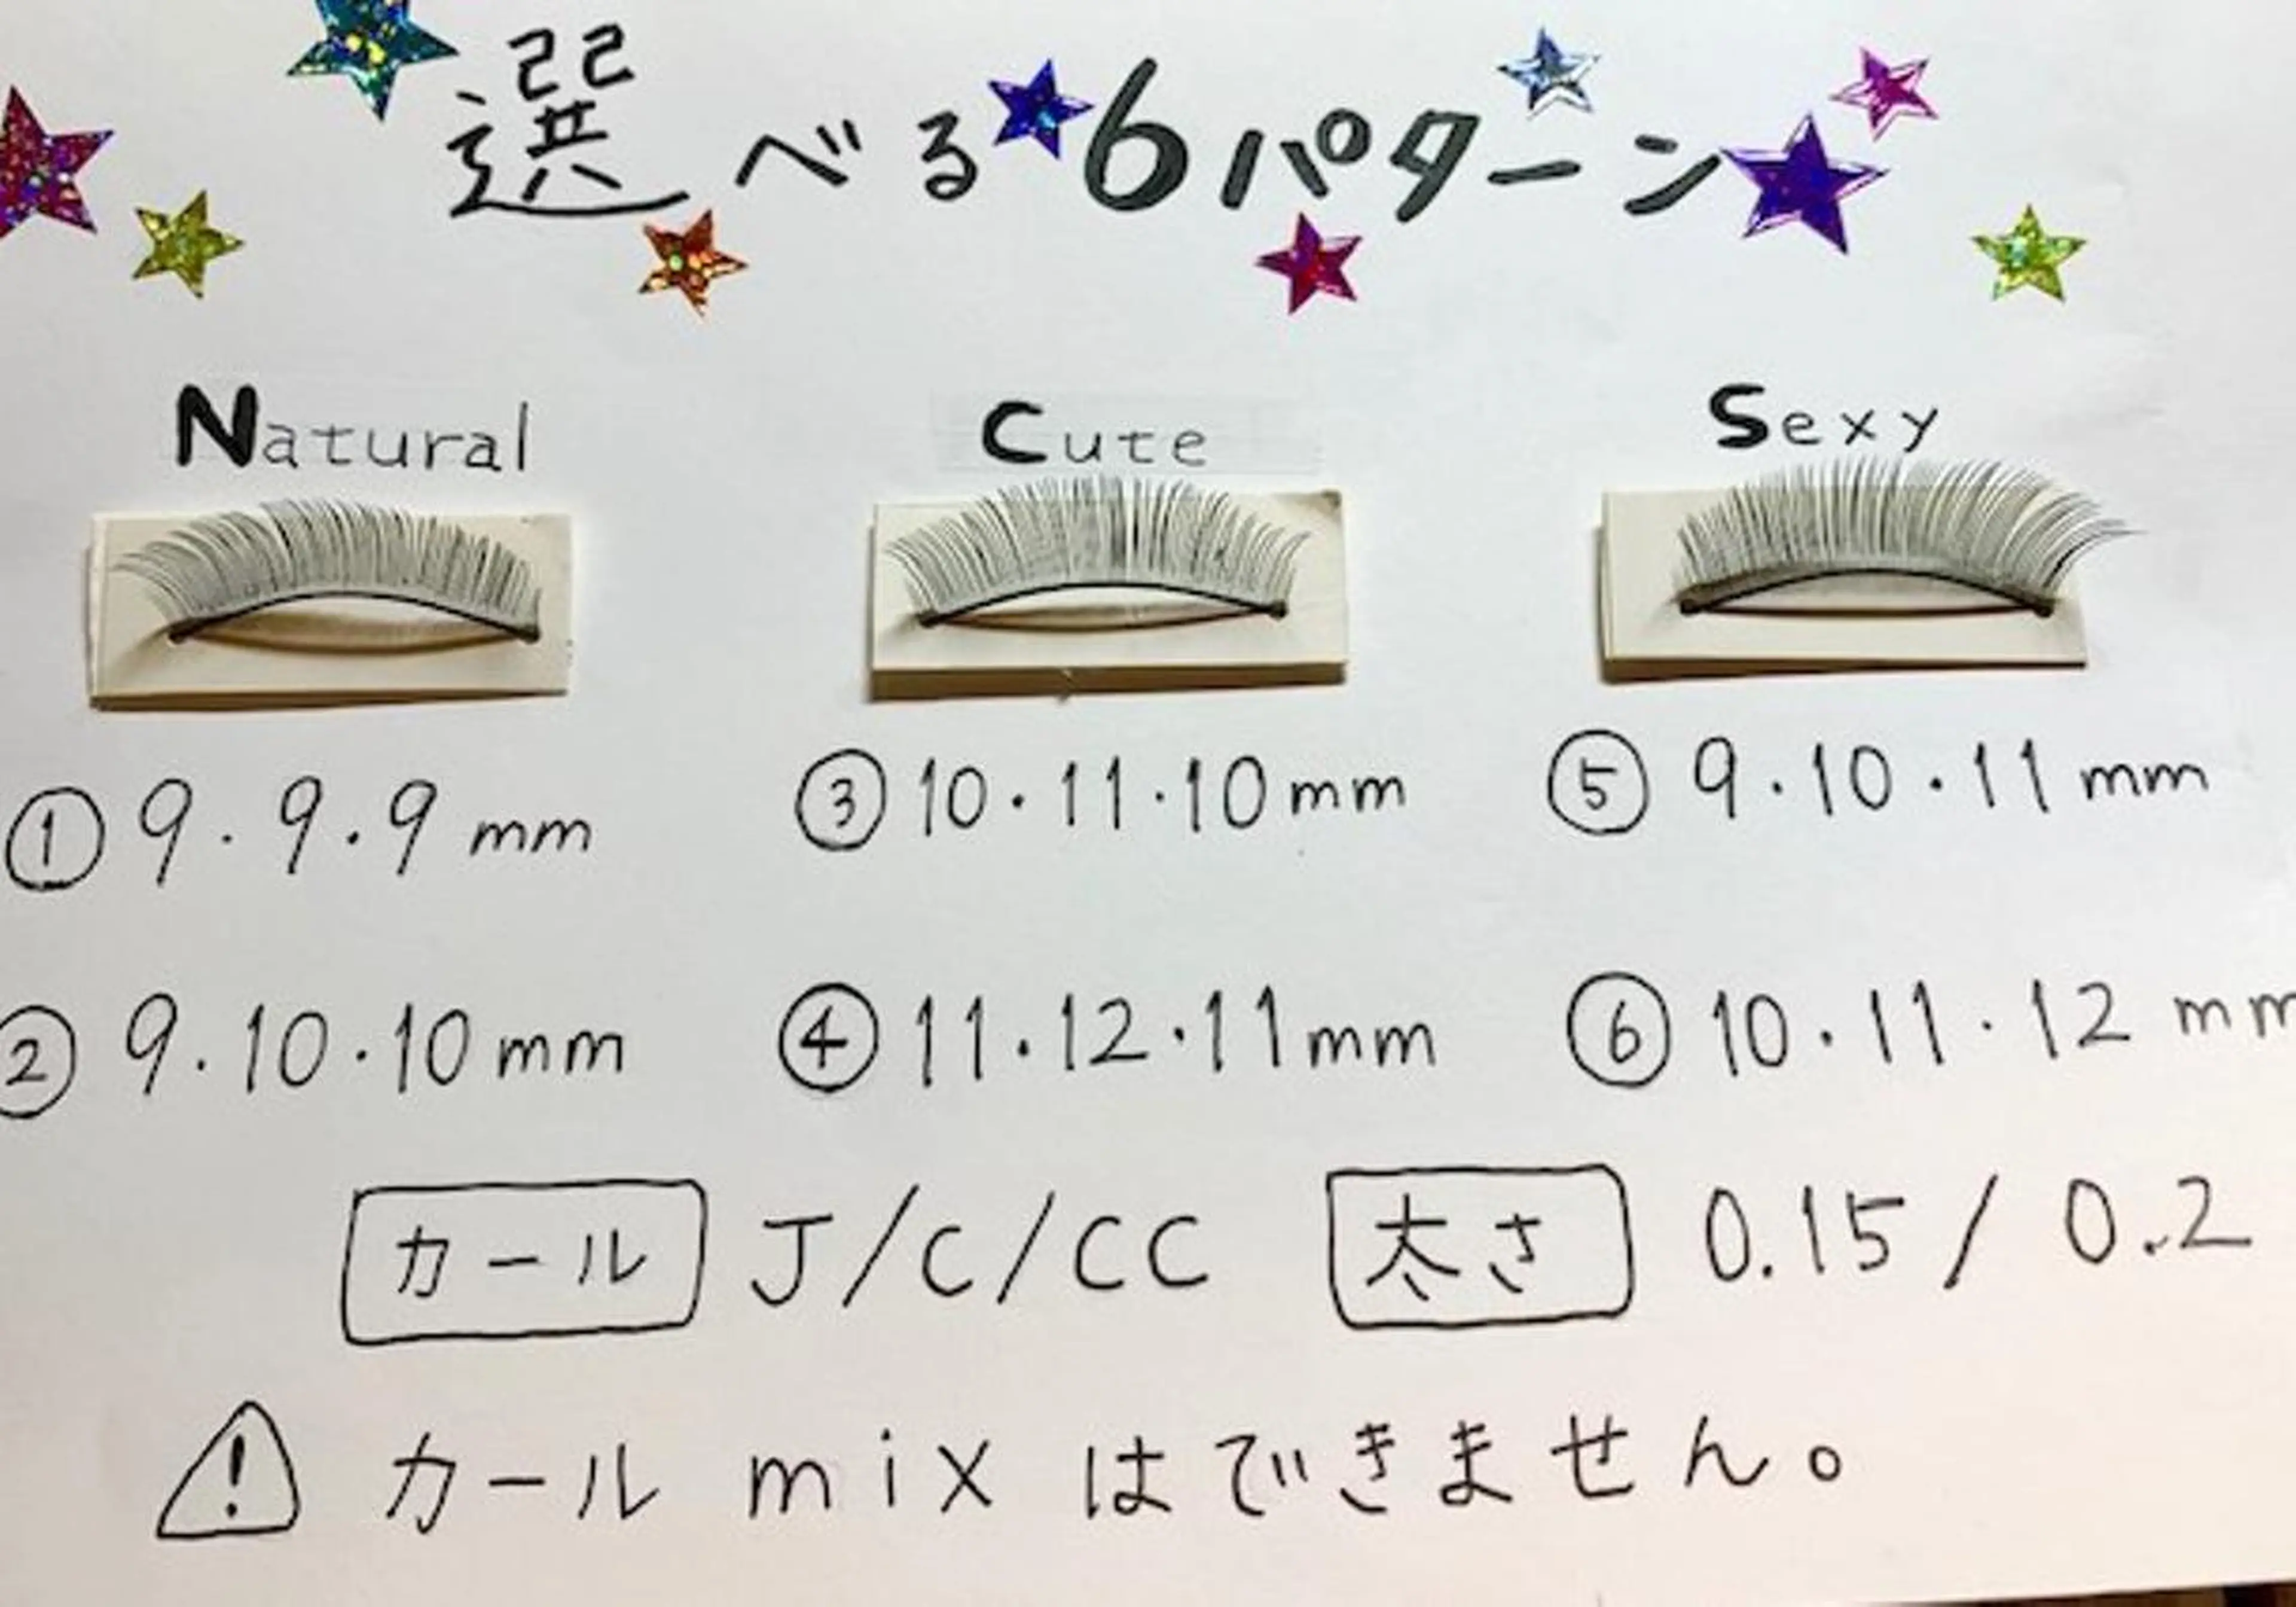 選べる6パターン
Natural
Cute
Sexy
① 9・9・9mm
③ 10・11・10mm
⑤ 9・10・11mm
② 9・10・10mm
④ 11・12・11mm
⑥ 10・11・12mm
カール J/C/CC 太さ 0.15/0.2
⚠ カールmixはできません。